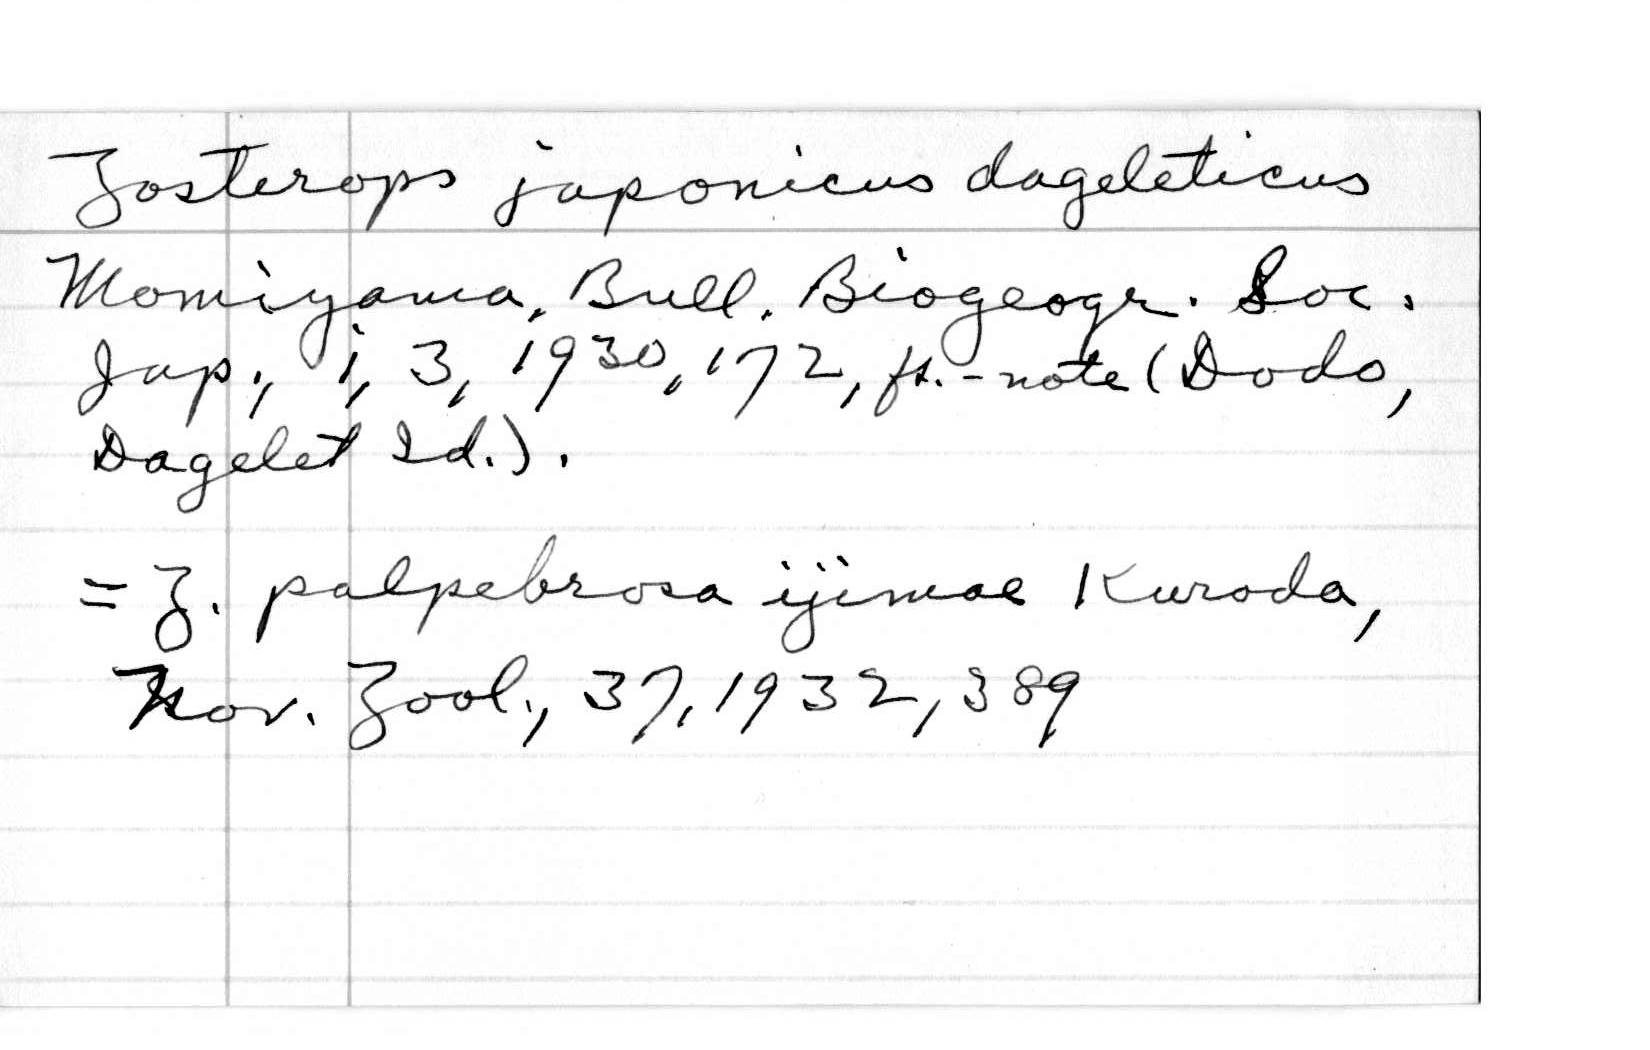 Zosterops japonicus dageleticus
Momiyama, Bull. Biogeogr. Soc.
Jap., i, 3, 1930, 172, ft.-note (Dodo,
Dagelet Id.).
= Z. palpebrosa ijimae Kuroda,
Nov. Zool., 37, 1932, 389